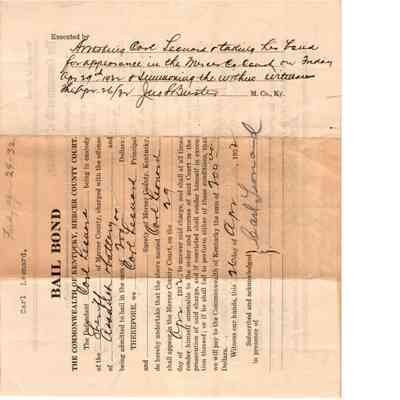 Executed by
Arresting Carl Leonard & taking his bond
for appearance in the Mercer Co Court on Friday
Apr 29th 1932 & Summoning the within witnesses
this Apr. 26/32
M. Co., Ky.
Carl Leonard.
BAIL BOND
THE COMMONWEALTH OF KENTUCKY, MERCER COUNTY COURT.
The Defendant Carl Leonard being in custody
of the of Mercer County, charged with the offense
of Assault & Battery
being admitted to bail in the sum of $200 Dollars:
THEREFORE, we Carl Leonard Principal
and Surety of Mercer County, Kentucky,
do hereby undertake that the above named Carl Leonard
shall appear in the Mercer County Court, on the 29
day of Apr 1932, to answer said charge, and shall at all times
render himself amenable to the order and process of said Court in the
prosecution of said charge, and if convicted shall render himself in execu-
tion thereof; or if he shall fail to perform either of these conditions, that
we will pay to the Commonwealth of Kentucky the sum of 200.00
Dollars.
Witness our hands, this 26 day of Apr 1932
Subscribed and acknowledged
in presence of
Carl Leonard